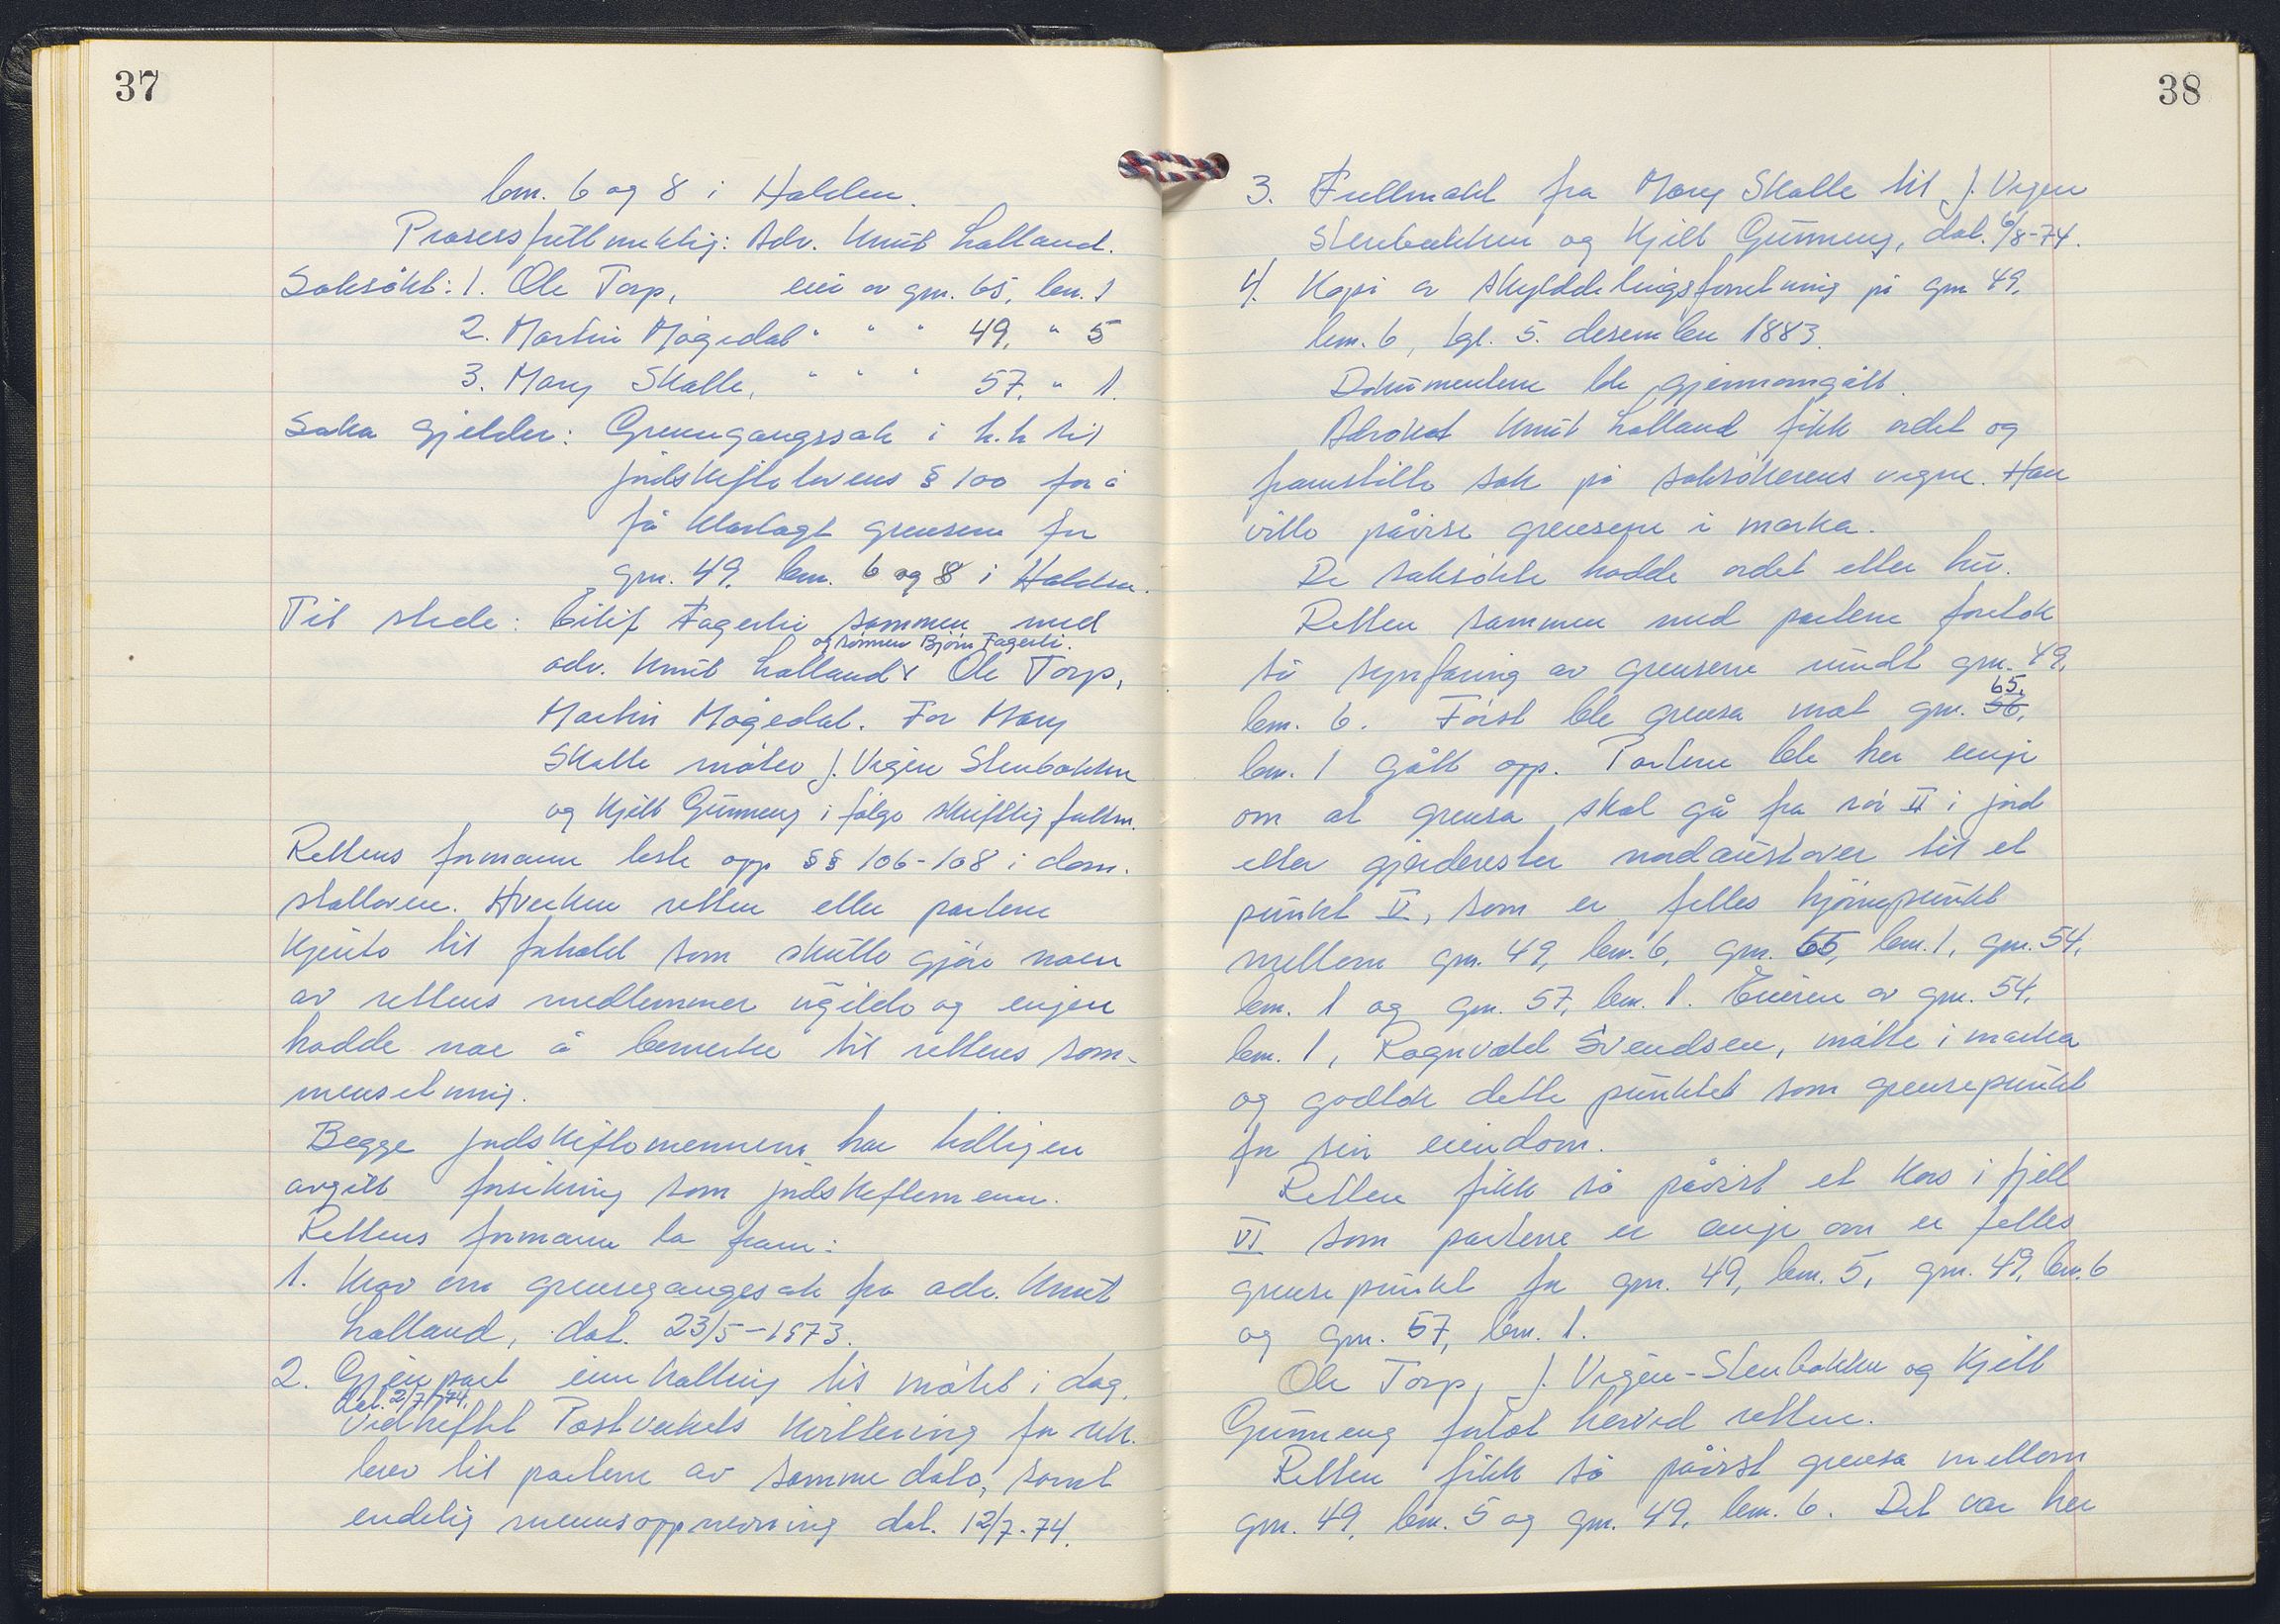 37
bnr. 6 og 8 i Halden.
Prosessfullmektig: Adv. Knut Lalland.
Saksøkt: 1. Ole Torp, eier av gnr. 65, bnr. 1
2. Martin Mågedal " " " 49, " 5
3. Mary Skolle, " " " 57, " 1.
Saka gjelder: Grensegangssak i h.h til
jordskiftelovens § 100 for å
få klarlagt grensene for
gnr. 49, bnr. 6 og 8 i Halden.
Til stede: Eilif Fagerli sammen med
og sønnen Bjørn Fagerli.
adv. Knut Lalland x Ole Torp,
Martin Mågedal. For Mary
Skolle møter J. Vigen Stenbakken
og Kjell Gunneng i følge skriftlig fullm.
Rettens formann leste opp §§ 106-108 i dom-
stolloven. Hverken retten eller partene
kjente til forhold som skulle gjøre noen
av rettens medlemmer ugilde og ingen
hadde noe å bemerke til rettens sam-
mensetning.
Begge jordskiftemennene har tidligere
avgitt forsikring som jordskiftemenn.
Rettens formann la fram:
1. Krav om grensegangssak fra adv. Knut
Lalland, dat. 23/5-1973.
2. Gjenpart innkalling til møtet i dag,
dat. 2/7/74,
vedheftet Postverkets kvittering for rek.
brev til partene av samme dato, samt
endelig mennsoppnevning dat. 12/7-74.
38
3. Fullmakt fra Mary Skolle til J. Vigen
Stenbakken og Kjell Gunneng, dat. 6/8-74.
4. Kopi av skylddelingsforretning på gnr 49,
bnr. 6, tgl. 5. desember 1883.
Dokumentene ble gjennomgått.
Advokat Knut Lalland fikk ordet og
framstilte sak på saksøkerens vegne. Han
ville påvise grensene i marka.
De saksøkte hadde ordet etter tur.
Retten sammen med partene foretok
så synfaring av grensene rundt gnr. 49,
65,
bnr. 6. Først ble grensa mot gnr. 56,
bnr. 1 gått opp. Partene ble her enige
om at grensa skal gå fra rør II i jord
etter gjerderester nordaustover til et
punkt V, som er felles hjørnepunkt
mellom gnr. 49, bnr. 6, gnr. 65, bnr. 1, gnr. 54,
bnr. 1 og gnr. 57, bnr. 1. Eieren av gnr. 54,
bnr. 1, Ragnvald Svendsen, møtte i marka
og godtok dette punktet som grensepunkt
for sin eiendom.
Retten fikk så påvist et kors i fjell
VI som partene er enige om er felles
grensepunkt for gnr. 49, bnr. 5, gnr. 49, bnr. 6
og gnr. 57, bnr. 1.
Ole Torp, J. Vigen-Stenbakken og Kjell
Gunneng forlot herved retten.
Retten fikk så påvist grensa mellom
gnr. 49, bnr. 5 og gnr. 49, bnr. 6. Det var her